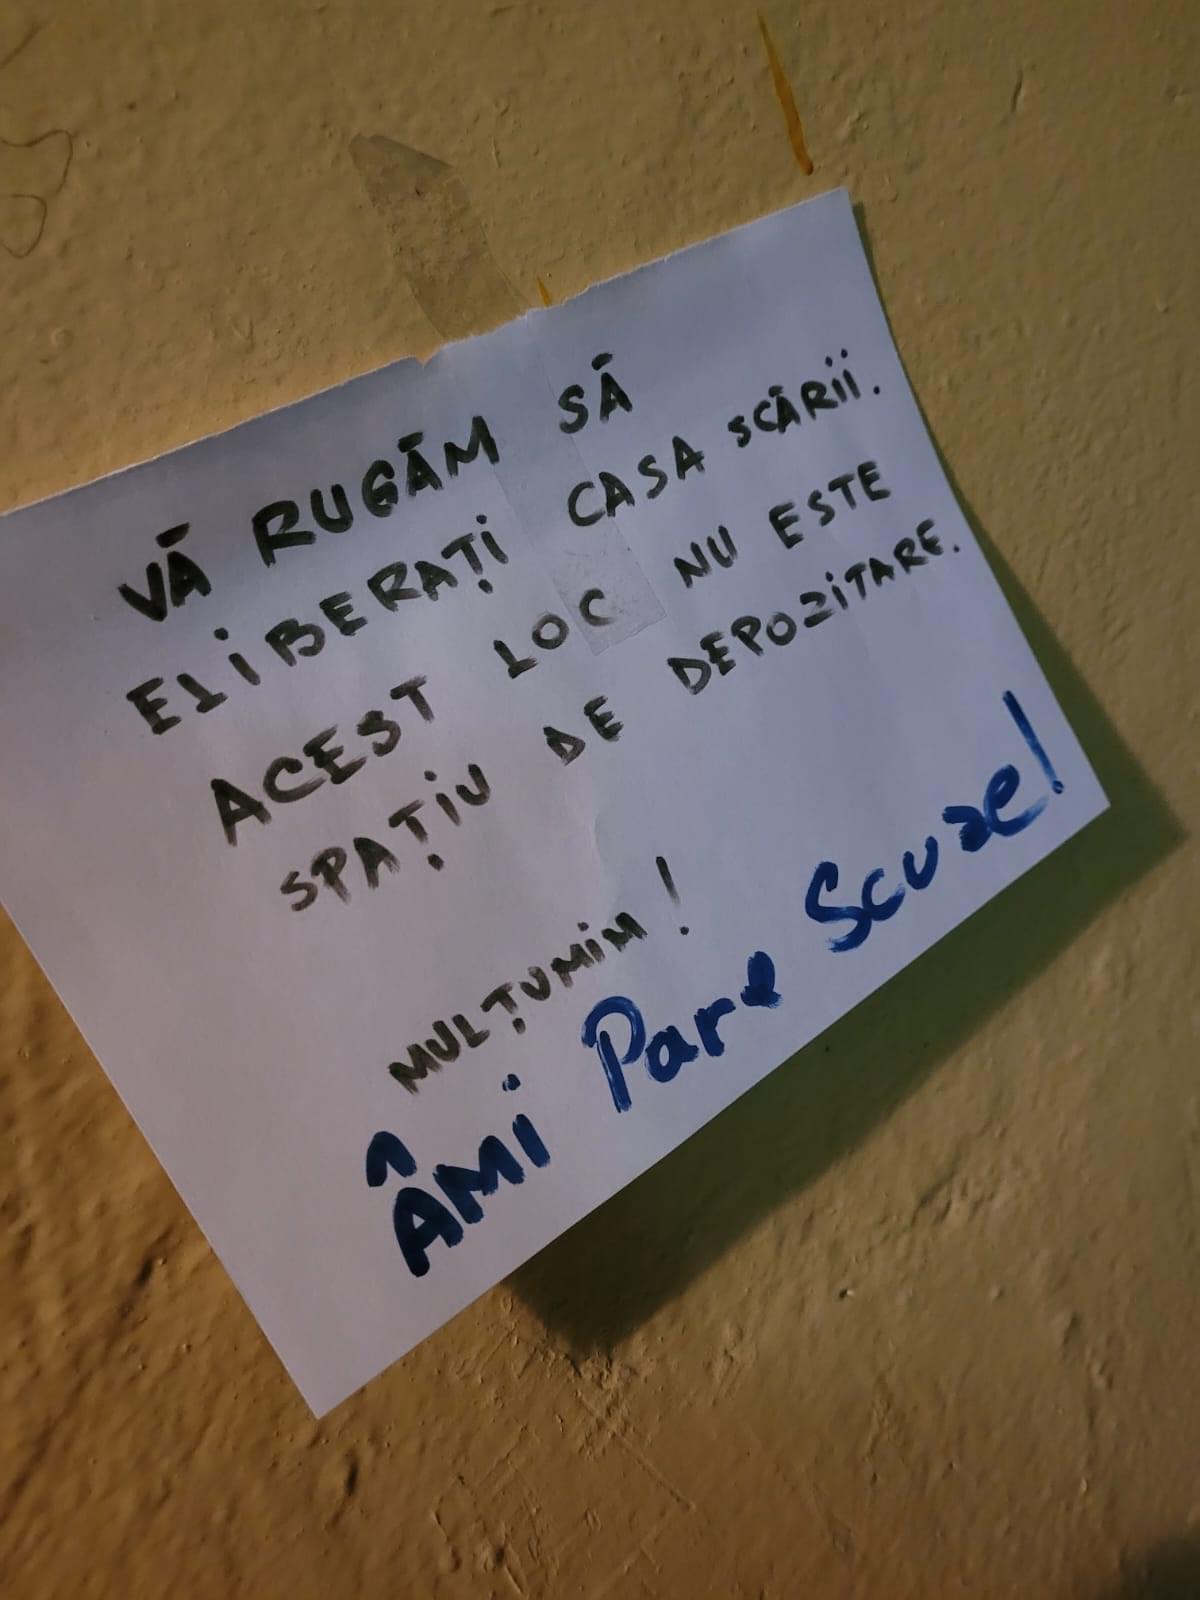 VĂ RUGĂM SĂ
ELIBERAȚI CASA SCĂRII.
ACEST LOC NU ESTE
SPAȚIU DE DEPOZITARE.
MULȚUMIM!
Âmi Pare Scuze!